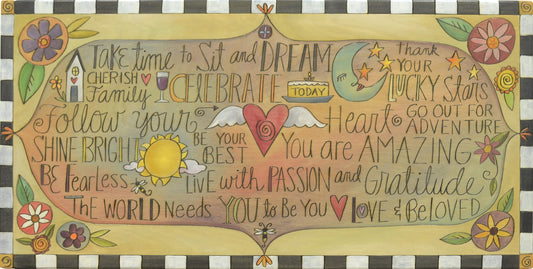 Take time to Sit and DREAM
CHERISH Family
CELEBRATE
TODAY
Thank YOUR LUCKY Stars
Follow your Heart
GO OUT FOR ADVENTURE
SHINE BRIGHT
BE YOUR BEST
You are AMAZING
BE fearless
LIVE with PASSION and Gratitude
The WORLD Needs YOU to Be You
LOVE & BE LOVED